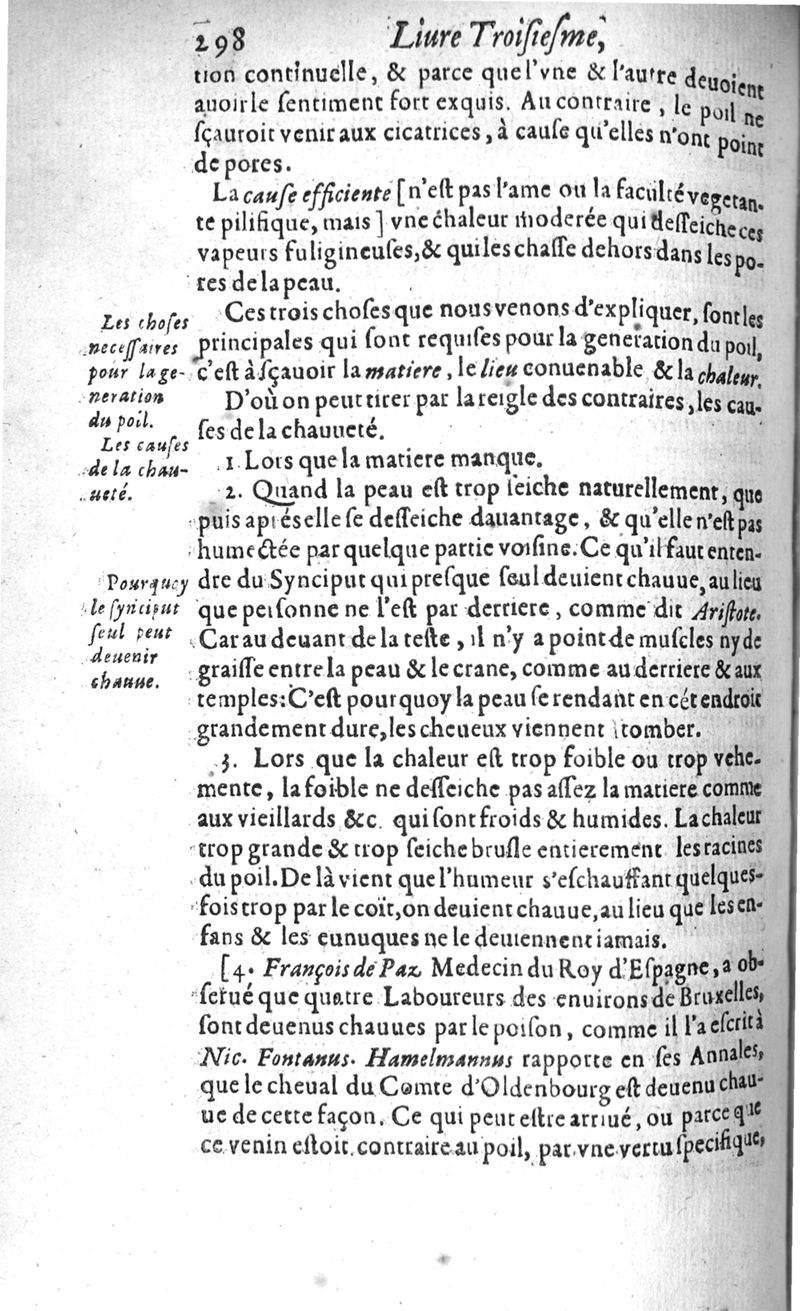 298 Liure Troisiesme,
tion continuelle, & parce que l'vne & l'autre deuoient
auoir le sentiment fort exquis. Au contraire, le poil ne
sçauroit venir aux cicatrices, à cause qu'elles n'ont point
de pores.
La cause efficiente [n'est pas l'ame ou la faculté vegetan-
te pilifique, mais] vne chaleur moderée qui desseiche ces
vapeurs fuligineuses, & qui les chasse dehors dans les po-
res de la peau.
Ces trois choses que nous venons d'expliquer, sont les
principales qui sont requises pour la generation du poil,
c'est à sçauoir la matiere, le lieu conuenable & la chaleur.
D'où on peut tirer par la reigle des contraires, les cau-
ses de la chauueté.
1. Lors que la matiere manque.
2. Quand la peau est trop seiche naturellement, que
puis aprés elle se desseiche dauantage, & qu'elle n'est pas
humectée par quelque partie voisine. Ce qu'il faut enten-
dre du Synciput qui presque seul deuient chauue, au lieu
que personne ne l'est par derriere, comme dit Aristote.
Car au deuant de la teste, il n'y a point de muscles ny de
graisse entre la peau & le crane, comme au derriere & aux
temples: C'est pourquoy la peau se rendant en cét endroit
grandement dure, les cheueux viennent à tomber.
3. Lors que la chaleur est trop foible ou trop vehe-
mente, la foible ne desseiche pas assez la matiere comme
aux vieillards &c. qui sont froids & humides. La chaleur
trop grande & trop seiche brusle entierement les racines
du poil. De là vient que l'humeur s'eschauffant quelques-
fois trop par le coït, on deuient chauue, au lieu que les en-
fans & les eunuques ne le deuiennent iamais.
[4. François de Paz Medecin du Roy d'Espagne, a ob-
serué que quatre Laboureurs des enuirons de Bruxelles,
sont deuenus chauues par le poison, comme il l'a escrit à
Nic. Fontanus. Hamelmannus rapporte en ses Annales,
que le cheual du Comte d'Oldenbourg est deuenu chau-
ue de cette façon. Ce qui peut estre arriué, ou parce que
ce venin estoit contraire au poil, par vne vertu specifique,
Les choses
necessaires
pour la ge-
neration
du poil.
Les causes
de la chau-
ueté.
Pourquoy
le synciput
seul peut
deuenir
chauue.